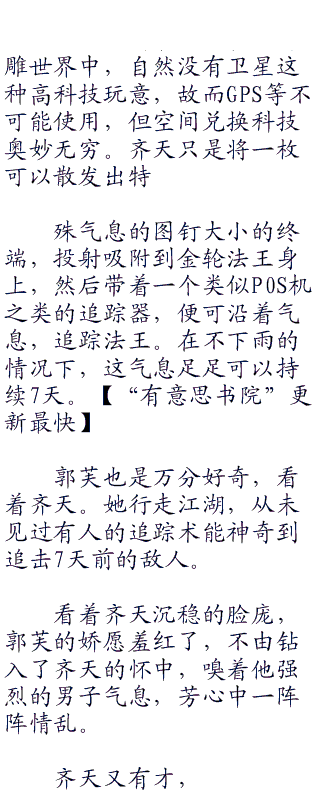 雕世界中，自然没有卫星这
种高科技玩意，故而GPS等不
可能使用，但空间兑换科技
奥妙无穷。齐天只是将一枚
可以散发出特
殊气息的图钉大小的终
端，投射吸附到金轮法王身
上，然后带着一个类似POS机
之类的追踪器，便可沿着气
息，追踪法王。在不下雨的
情况下，这气息足足可以持
续7天。【“有意思书院”更
新最快】
郭芙也是万分好奇，看
着齐天。她行走江湖，从未
见过有人的追踪术能神奇到
追击7天前的敌人。
看着齐天沉稳的脸庞，
郭芙的娇愿羞红了，不由钻
入了齐天的怀中，嗅着他强
烈的男子气息，芳心中一阵
阵情乱。
齐天又有才，